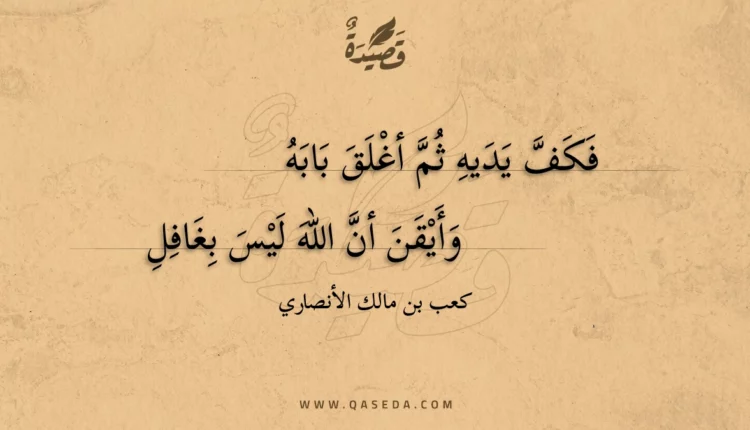 قَصِيدَةٌ
فَكَفَّ يَدَيهِ ثُمَّ أغْلَقَ بَابَهُ
وَأَيْقَنَ أنَّ اللهَ لَيْسَ بِغَافِلِ
كعب بن مالك الأنصاري
WWW.QASEDA.COM